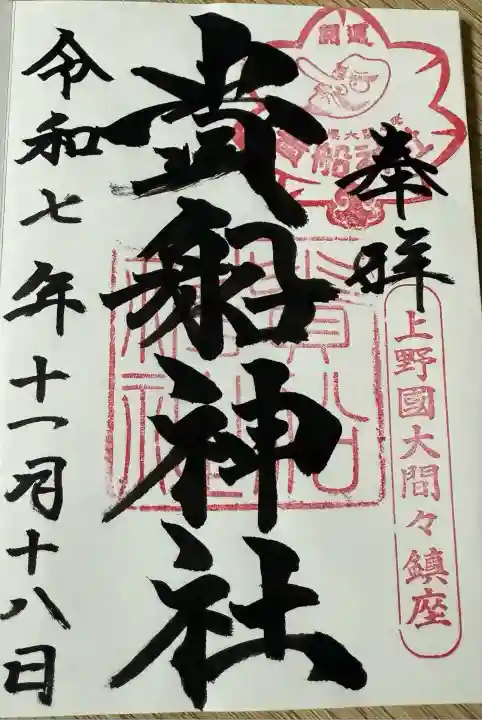 開運
奉拝
上野國大間々鎮座
貴船神社
貴船神社
令和七年十一月十八日